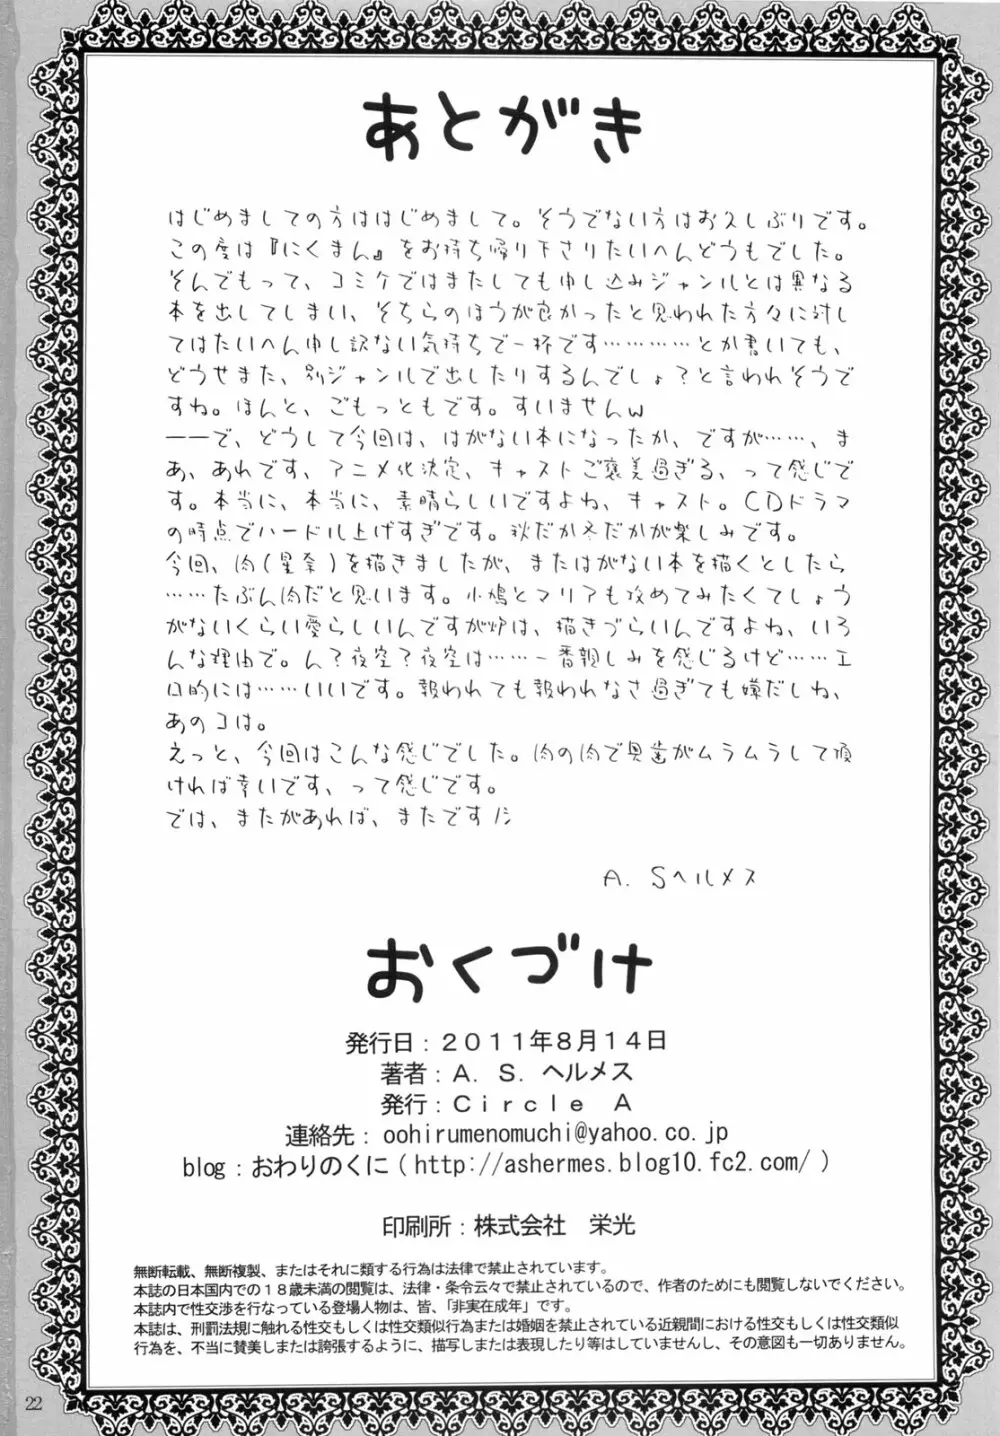 あとがき
はじめましての方ははじめまして。そうでない方はお久しぶりです。
この度は『にくまん』をお持ち帰り下さりたいへんどうもでした。
そんでもって、コミケではまたしても申し込みジャンルとは異なる
本を出してしまい、そちらのほうが良かったと思われた方々に対し
てはたいへん申し訳ない気持ちで一杯です…………とか書いても、
どうせまた、別ジャンルで出したりするんでしょ?と言われそうで
すね。ほんと、ごもっともです。すいませんw
――で、どうして今回は、はがない本になったか、ですが……、ま
あ、あれです、アニメ化決定、キャストご褒美過ぎる、って感じで
す。本当に、本当に、素晴らしいですよね、キャスト。CDドラマ
の時点でハードル上げすぎです。秋だか冬だかが楽しみです。
今回、肉(星奈)を描きましたが、またはがない本を描くとしたら
……たぶん肉だと思います。小鳩とマリアも攻めてみたくてしょう
がないくらい愛らしいんですが炉は、描きづらいんですよね、いろ
んな理由で。ん?夜空?夜空は……一番親しみを感じるけど……エ
ロ的には……いいです。報われても報われなさ過ぎても嫌だしね、
あのコは。
えっと、今回はこんな感じでした。肉の肉で奥歯がムラムラして頂
ければ幸いです、って感じです。
では、またがあれば、またですノシ
A.Sヘルメス
おくづけ
発行日:2011年8月14日
著者:A.S.ヘルメス
発行:Circle A
連絡先:oohirumenomuchi@yahoo.co.jp
blog:おわりのくに(http://ashermes.blog10.fc2.com/)
印刷所:株式会社 栄光
無断転載、無断複製、またはそれに類する行為は法律で禁止されています。
本誌の日本国内での18歳未満の閲覧は、法律・条令云々で禁止されているので、作者のためにも閲覧しないでください。
本誌内で性交渉を行なっている登場人物は、皆、「非実在成年」です。
本誌は、刑罰法規に触れる性交もしくは性交類似行為または婚姻を禁止されている近親間における性交もしくは性交類似
行為を、不当に賛美しまたは誇張するように、描写しまたは表現したり等はしていませんし、その意図も一切ありません。
22